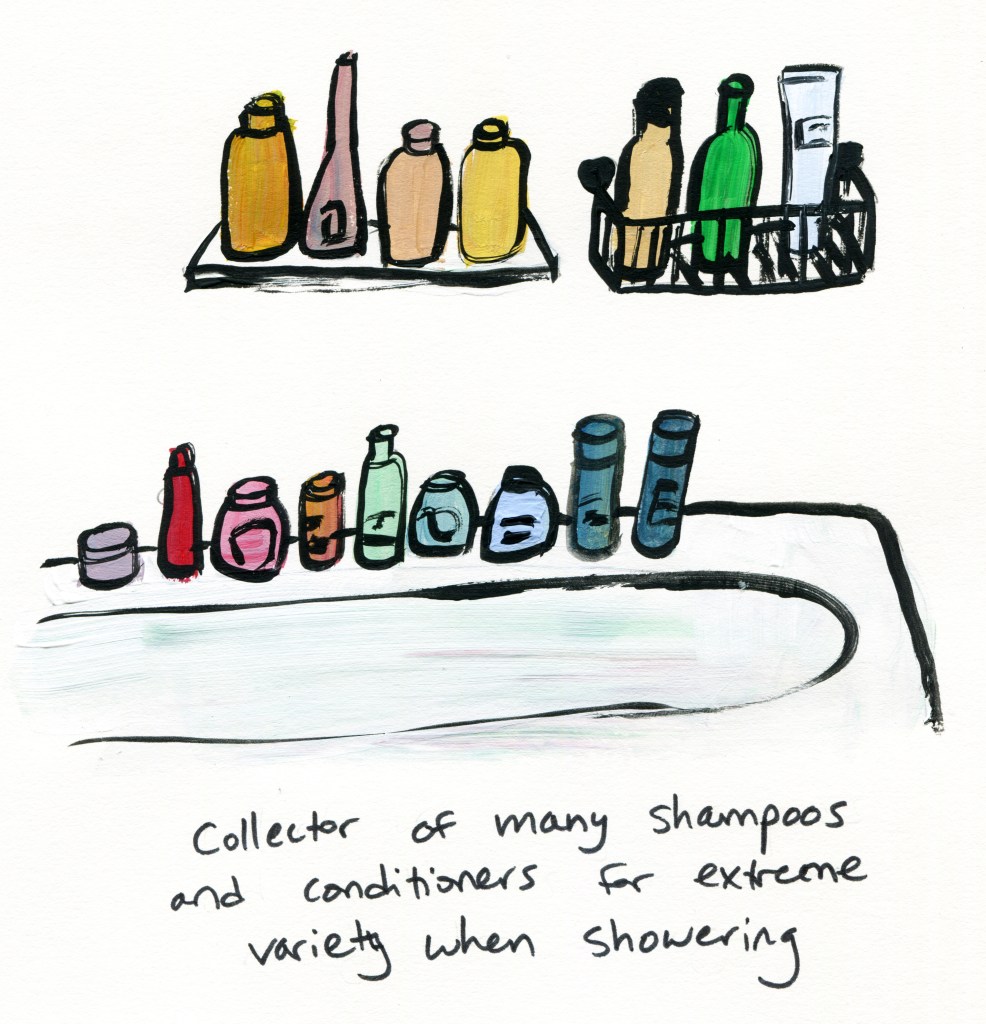 Collector of many shampoos
and conditioners for extreme
variety when showering